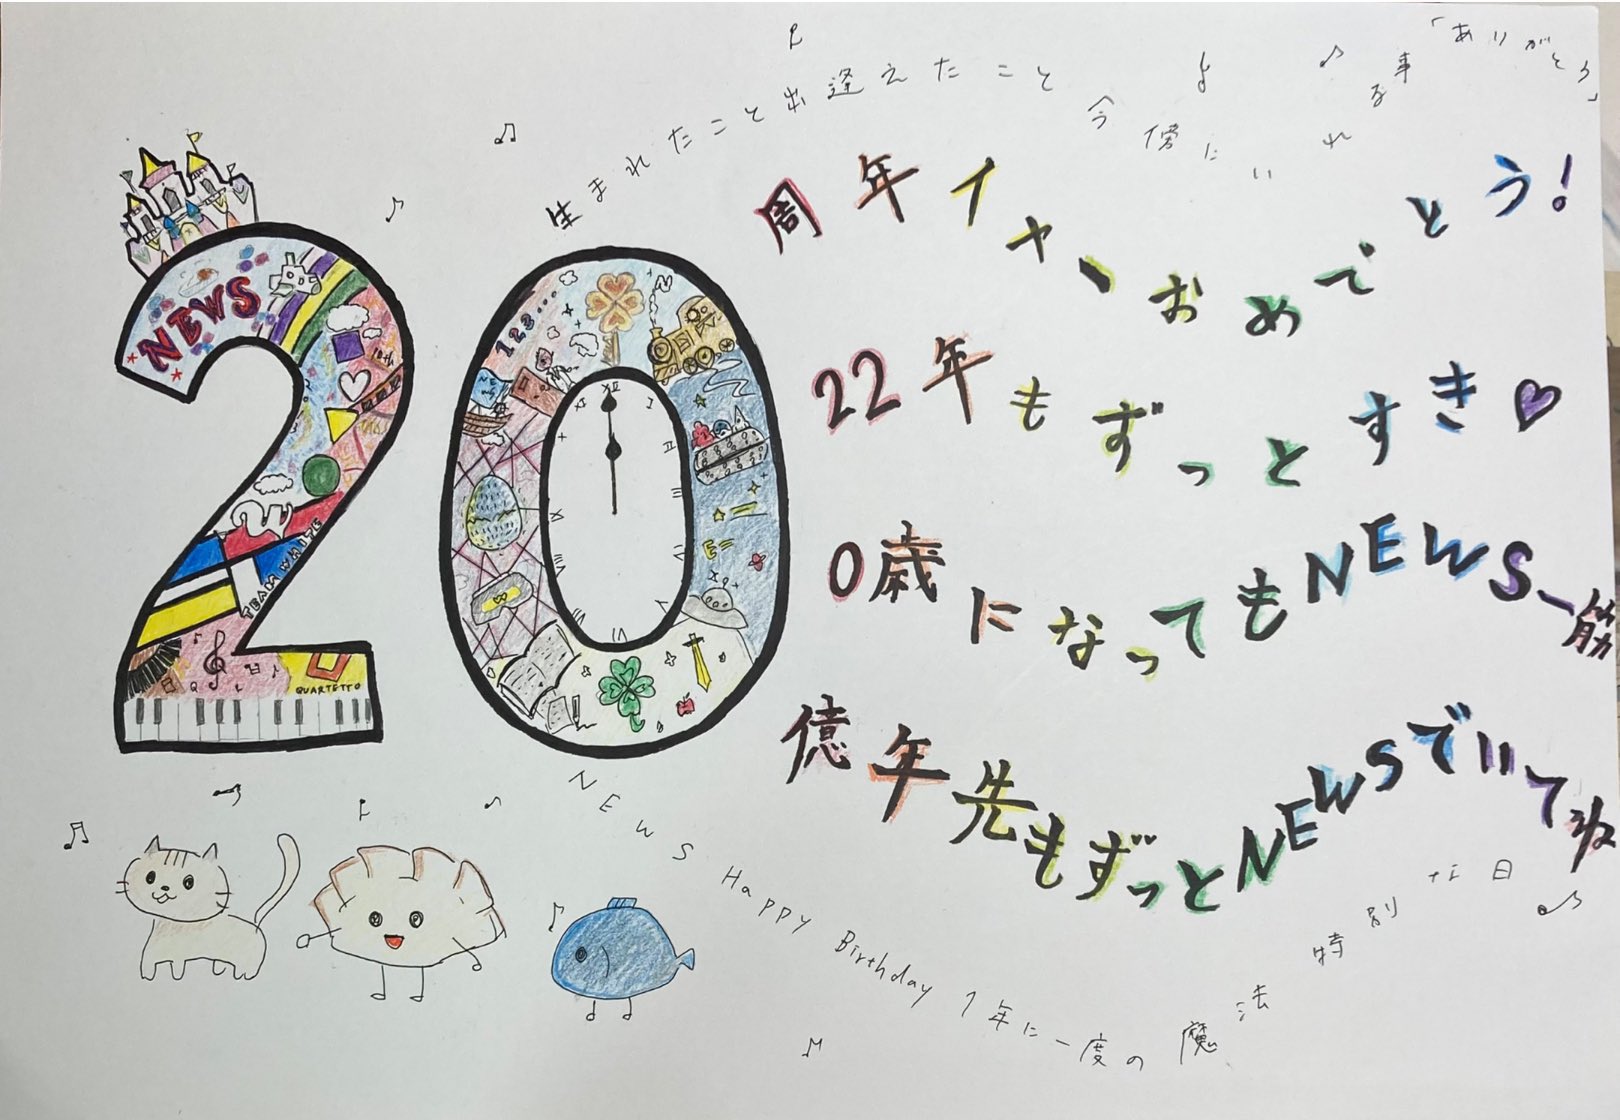 生まれたこと出逢えたこと 今 傍にいれる事 「ありがとう」
NEWS
10th
QUARTETTO
20
123...
N
NEWS
XII
周年イヤーおめでとう!
22年もずっとすき♡
0歳になってもNEWS一筋
億年先もずっとNEWSでいてね
NEWS Happy Birthday 1年に一度の魔法 特別な日